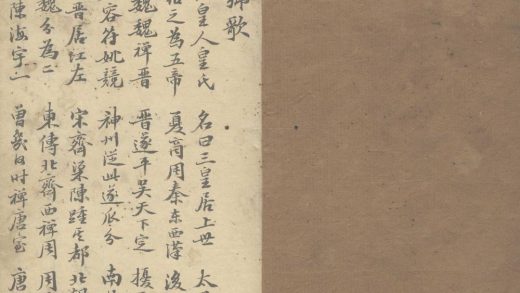 歌
皇人皇氏 名曰三皇居上世
之為五帝 夏商周秦東西漢
魏魏禪晋 晉遂平吳天下定
容符姚競 神州從此遂瓜分
晋居江左 宋齊梁陳踵其都 北
魏分為二 東傳北齊西禪周
陳海宇一 曾幾何時禪唐室 唐